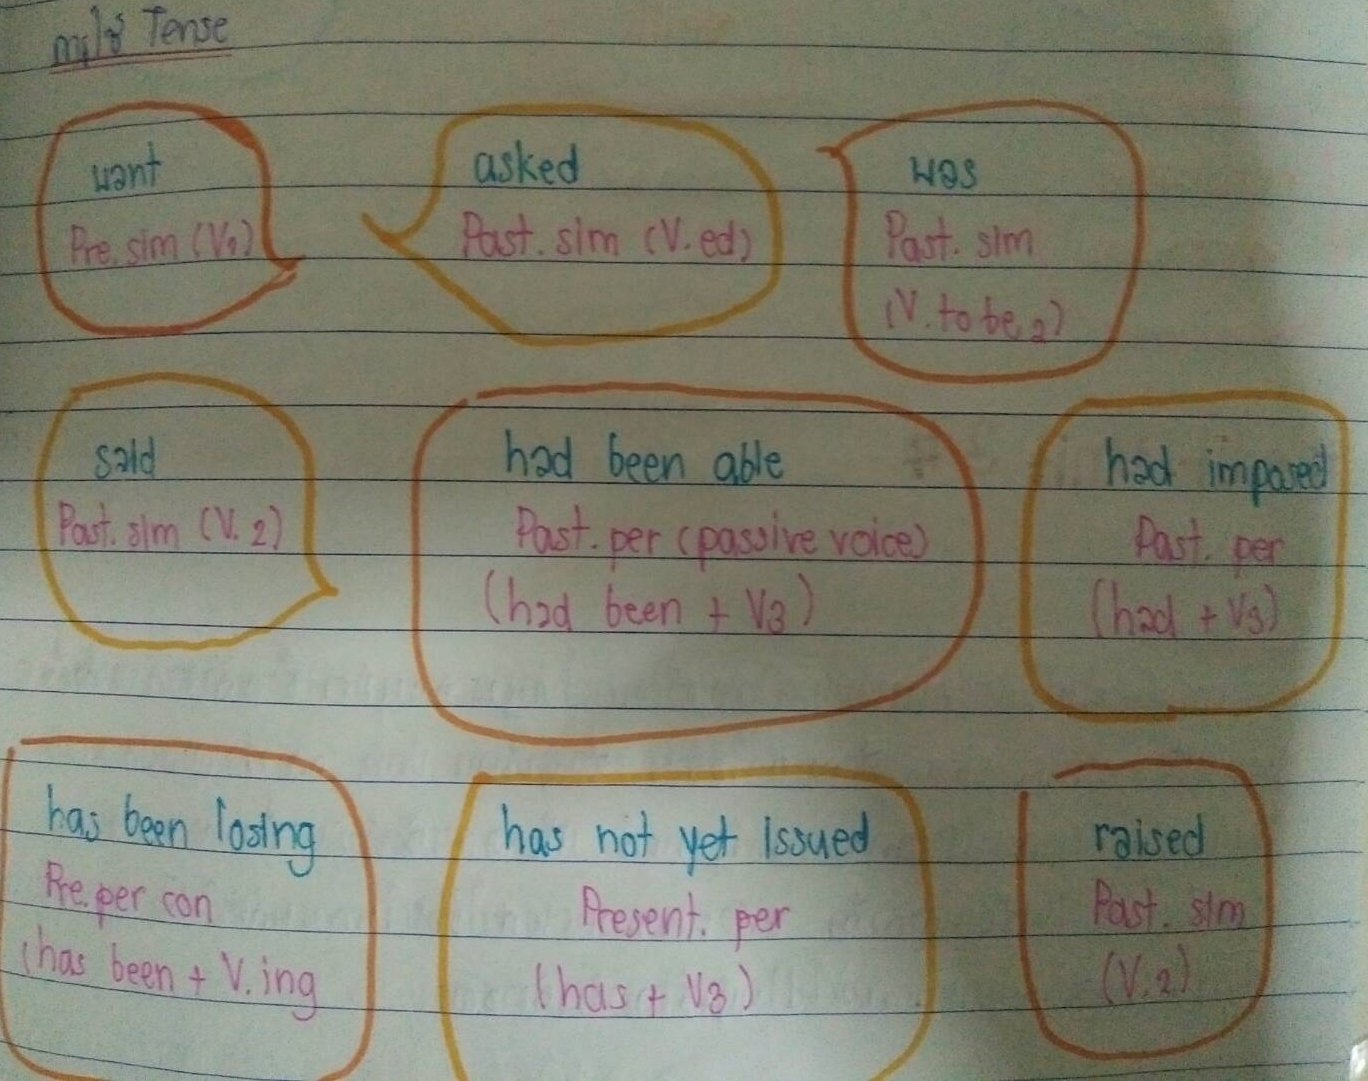 การใช้ Tense
want
Pre. sim (V1)
asked
Past. sim (V. ed)
was
Past. sim
(V. to be 2)
said
Past. sim (V. 2)
had been able
Past. per (passive voice)
(had been + V3)
had imposed
Past. per
(had + V3)
has been losing
Pre. per con
(has been + V. ing
has not yet issued
Present. per
(has + V3)
raised
Past. sim
(V. 2)